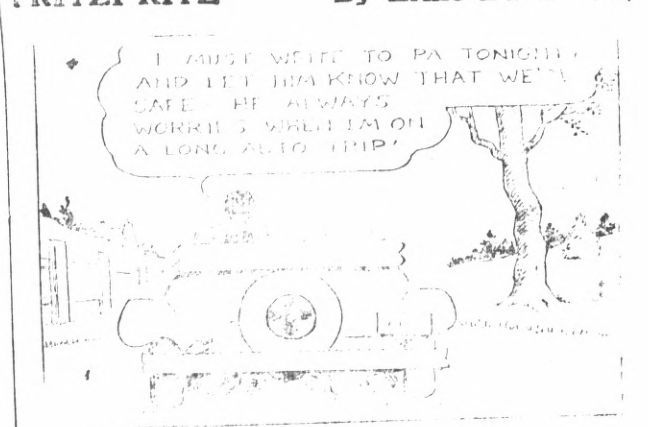 FRITZI RITZ By
I MUST WRITE TO PA TONIGHT,
AND LET HIM KNOW THAT WE'RE
SAFE – HE ALWAYS
WORRIES WHEN I'M ON
A LONG AUTO TRIP!